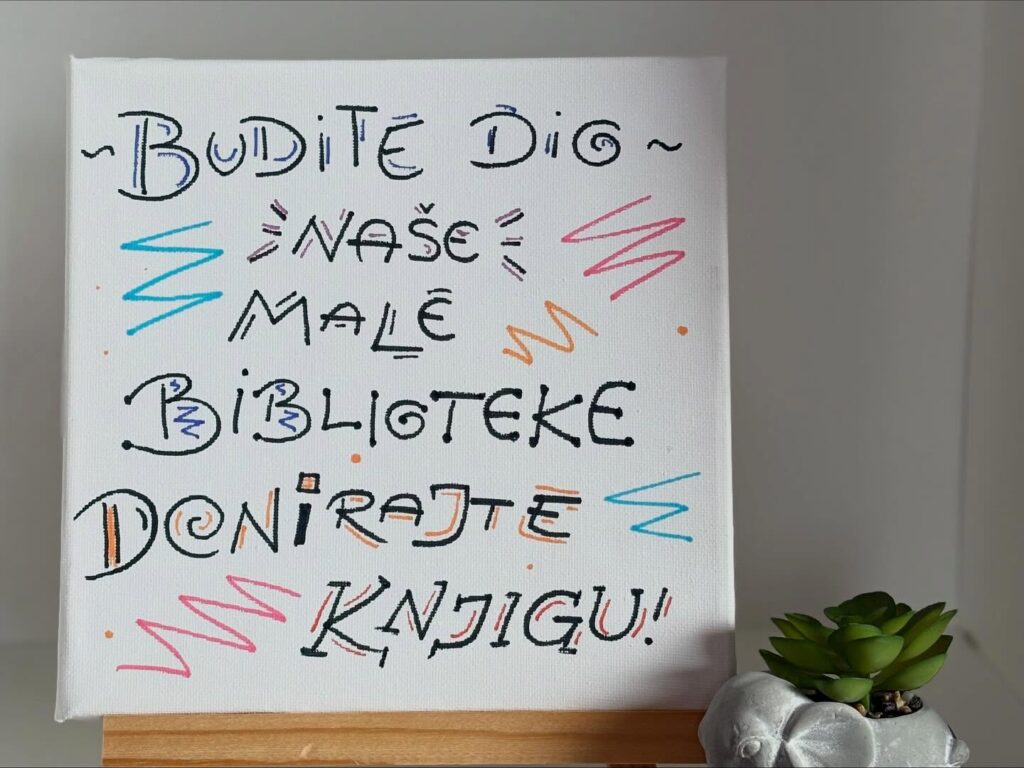 ~BUDiTE DiO~
NAŠE
MALE
BiBLIOTEKE
DONiRAJTE
KNJIGU!